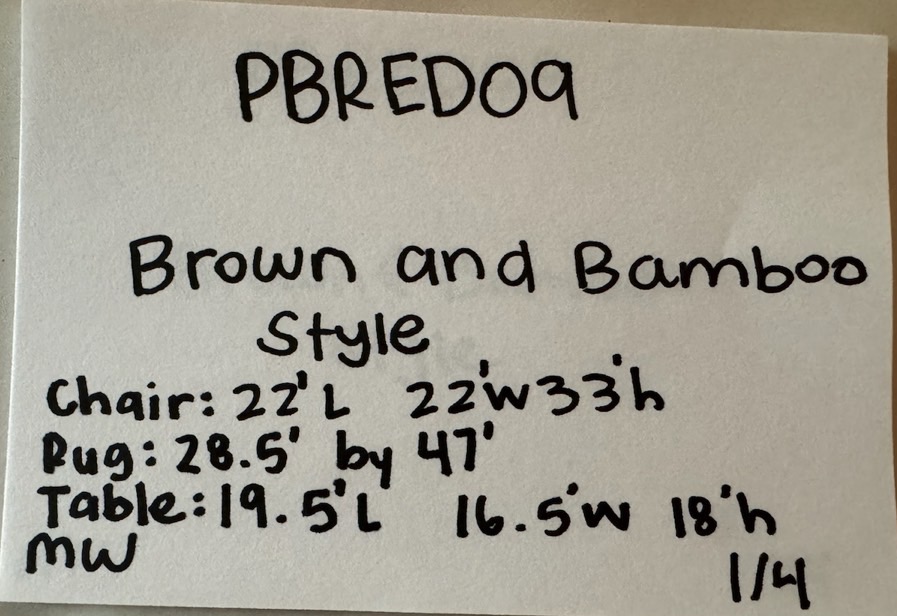 PBRED09
Brown and Bamboo
Style
Chair: 22' L 22'w 33'h
Rug: 28.5' by 47'
Table: 19.5'L 16.5'w 18'h
MW
1/4